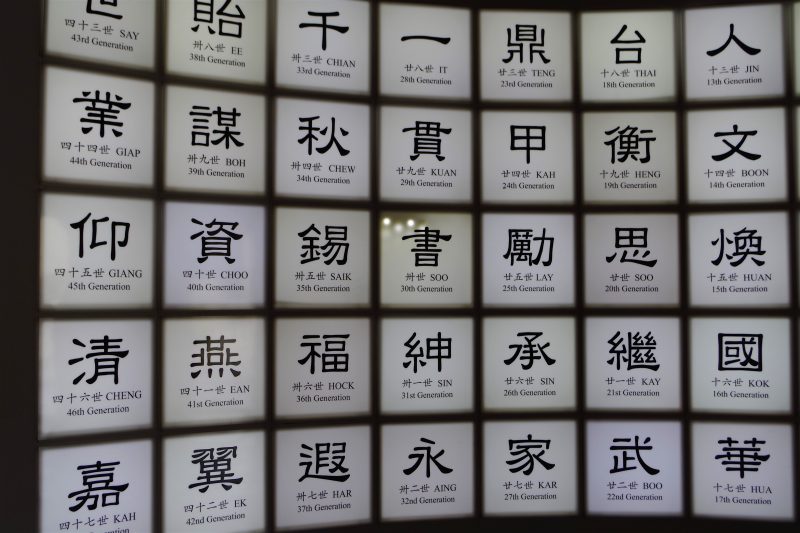 人
十三世 JIN
13th Generation
文
十四世 BOON
14th Generation
煥
十五世 HUAN
15th Generation
國
十六世 KOK
16th Generation
華
十七世 HUA
17th Generation
台
十八世 THAI
18th Generation
衡
十九世 HENG
19th Generation
思
廿世 SOO
20th Generation
繼
廿一世 KAY
21st Generation
武
廿二世 BOO
22nd Generation
鼎
廿三世 TENG
23rd Generation
甲
廿四世 KAH
24th Generation
勵
廿五世 LAY
25th Generation
承
廿六世 SIN
26th Generation
家
廿七世 KAR
27th Generation
一
廿八世 IT
28th Generation
貫
廿九世 KUAN
29th Generation
書
卅世 SOO
30th Generation
紳
卅一世 SIN
31st Generation
永
卅二世 AING
32nd Generation
千
卅三世 CHIAN
33rd Generation
秋
卅四世 CHEW
34th Generation
錫
卅五世 SAIK
35th Generation
福
卅六世 HOCK
36th Generation
遐
卅七世 HAR
37th Generation
貽
卅八世 EE
38th Generation
謀
卅九世 BOH
39th Generation
資
四十世 CHOO
40th Generation
燕
四十一世 EAN
41st Generation
翼
四十二世 EK
42nd Generation
世
四十三世 SAY
43rd Generation
業
四十四世 GIAP
44th Generation
仰
四十五世 GIANG
45th Generation
清
四十六世 CHENG
46th Generation
嘉
四十七世 KAH